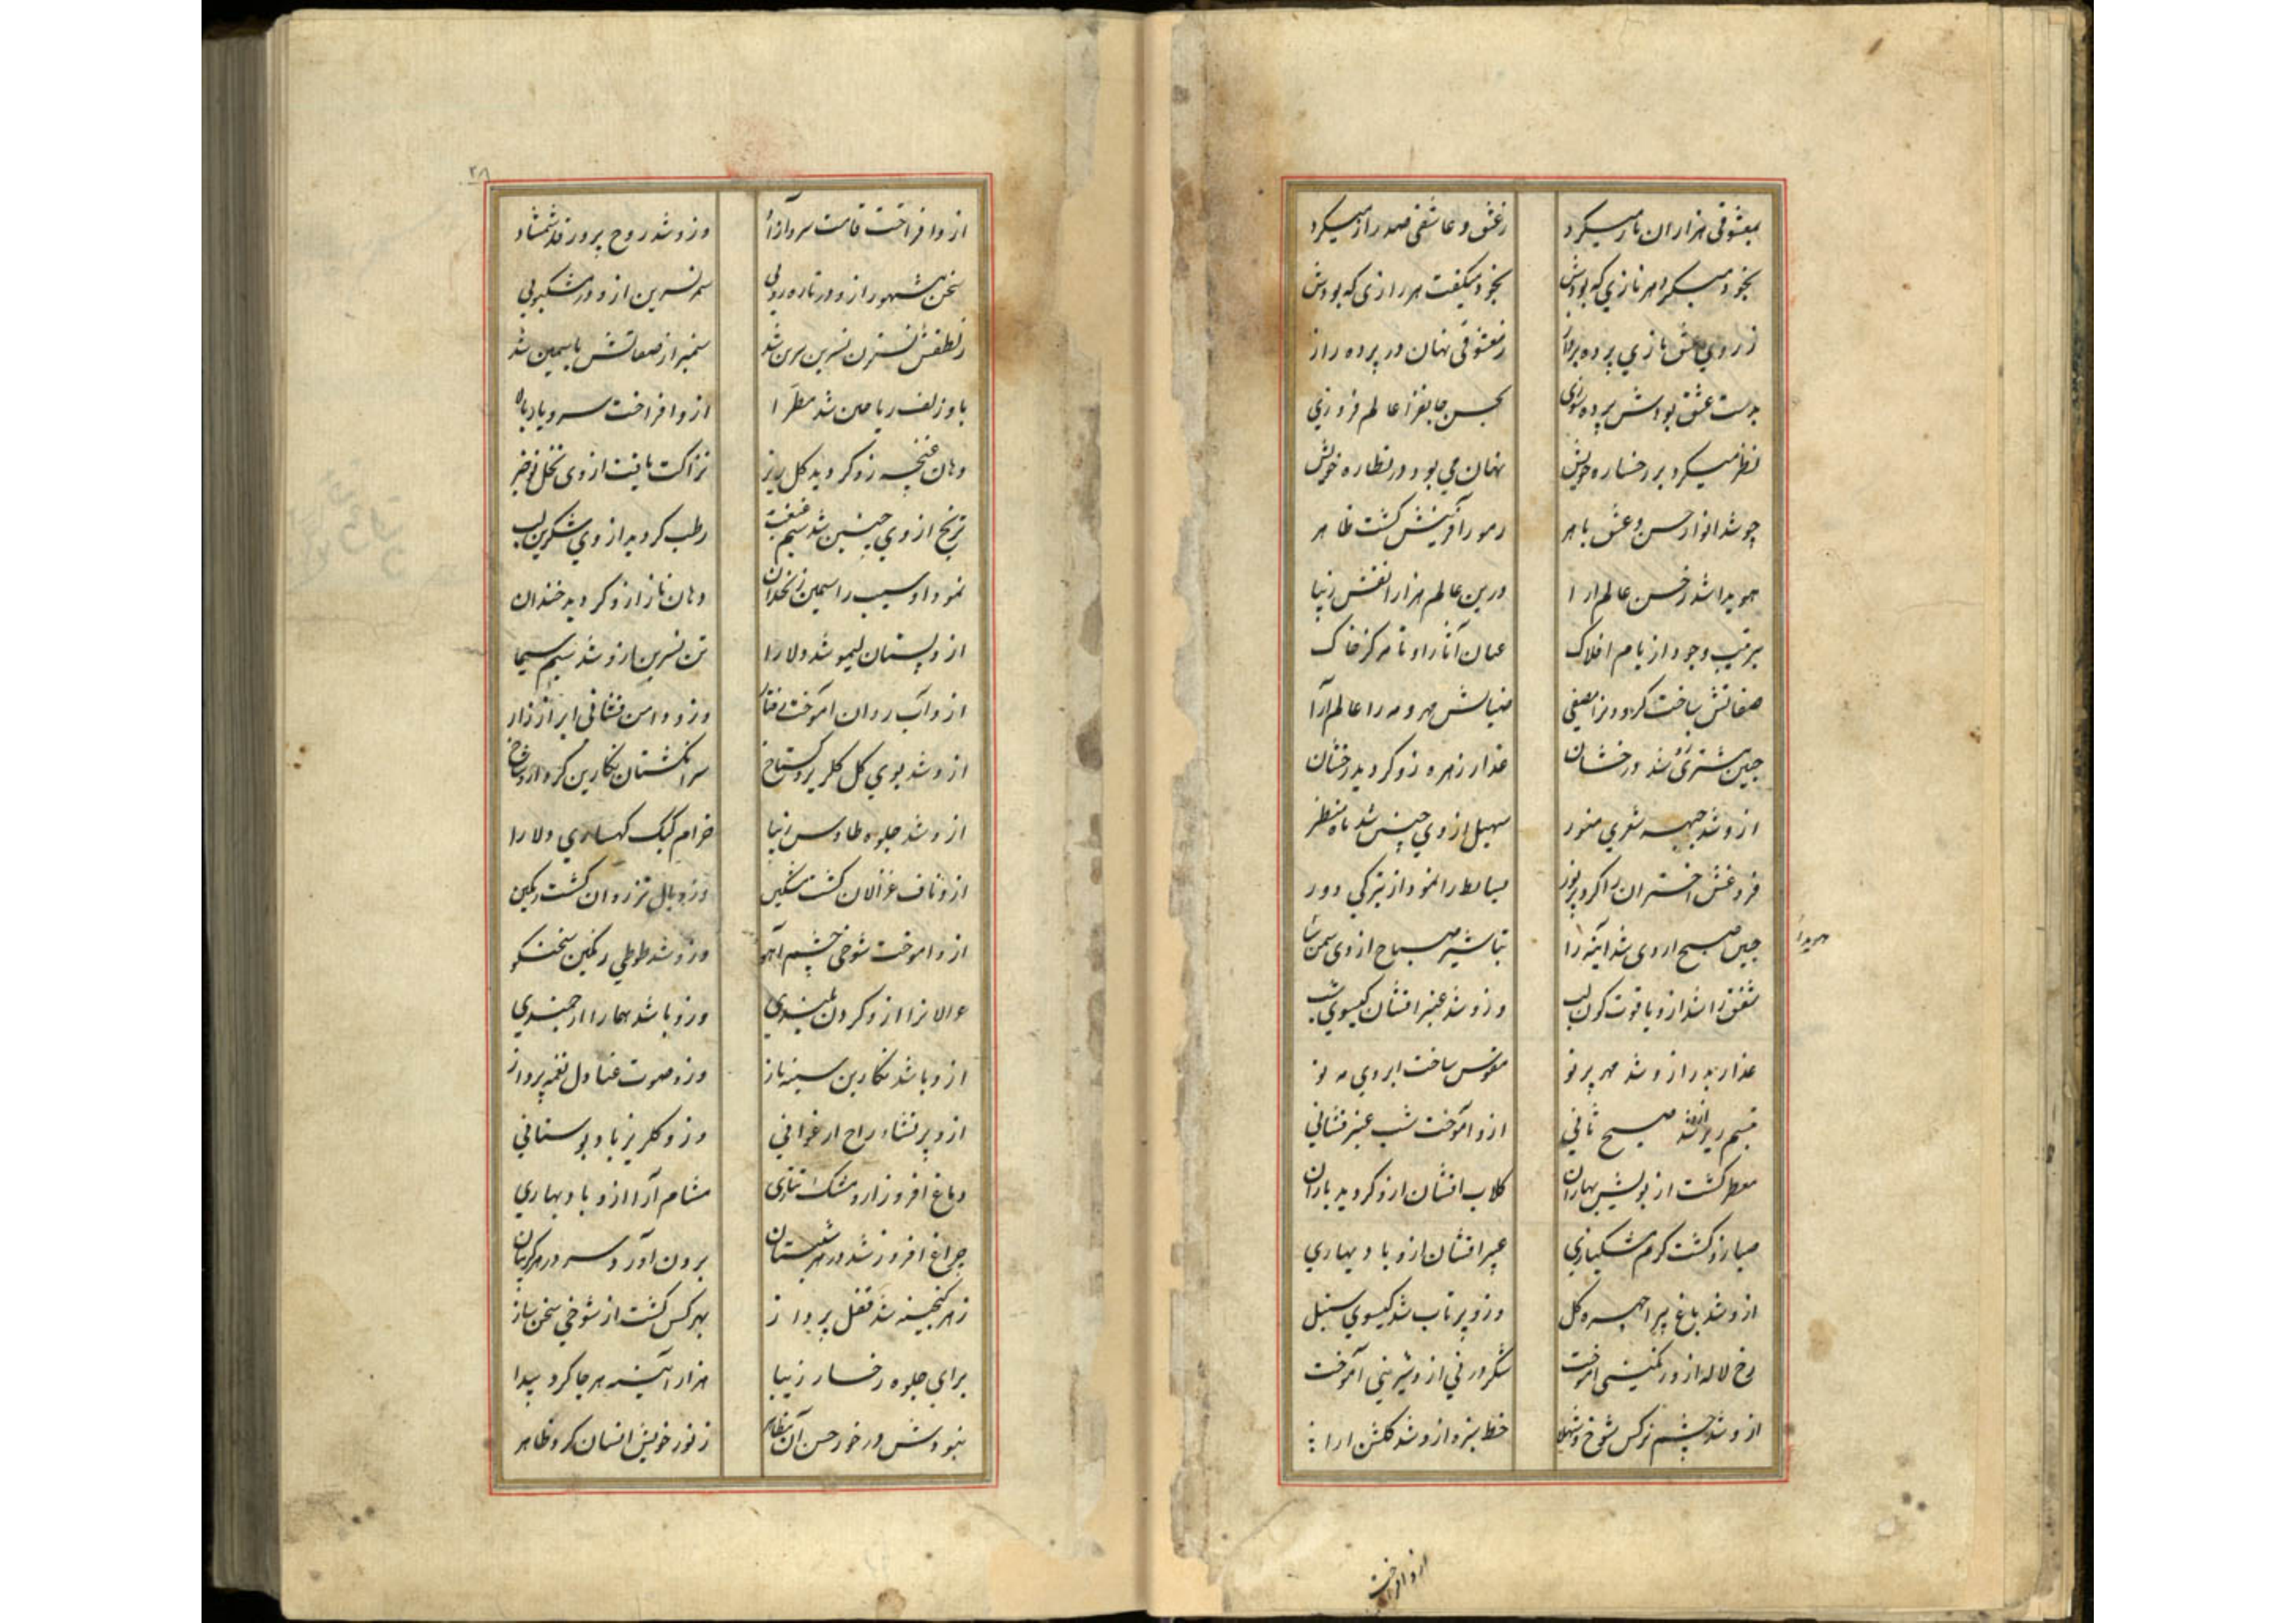 بمعشوقی هزاران ناز میکرد زعشق و عاشقی صد راز میکرد
بخود میکرد هر نازي که بودش بخود میکفت هر رازی که بودش
ز روي عشق بازي پرده پرداز ز معشوقی نهان در پرده راز
بدست عشق بودش پرده سوزی بحسن جانفزا عالم فروزي
نظر میکرد بر رخساره خویش نهان می بود در نظاره خویش
چو شد انوار حسن و عشق باهر رموز آفرینش کشت ظاهر
هویدا شد ز حسن عالم ارا درین عالم هزارا نقش زیبا
بترتیب وجود از بام افلاک عیان آثار او تا مرکز خاک
صفاتش ساخت کردونرا مصفی ضیایش مهر و مه را عالم آرا
جبین مشتری شد درخشان عذار زهره زو کردید رخشان
ازو شد جبهه شعري منور سهیل از وي چنین شد ماه منظر
فروغش اختران را کرد پرنور بساط را نمود از تیرکي دور
جبین صبح از وی شد آینه زا تباشیر صباح از وی سمن سا
شفق را شد ازو یاقوت کون لب وزو شد عنبر افشان کیسوي شب
عذار بدر ازو شد مهر پرتو مقوس ساخت ابروي مه نو
تبسم ریز ازو شد صبح ثاني ازو آموخت شب عنبر فشاني
معطر کشت از بویش بهاران کلاب افشان ازو کردید باران
صبا زو کشت کرم مشکباری عبیر افشان ازو باد بهاري
ازو شد باغ پیرا چهره کل وزو پرتاب شد کیسوي سنبل
رخ لاله ازو رنکینی آموخت شکر ورني ازو شیرینی آموخت
ازو شد چشم نرکس شوخ و شهلا خط سبزه ازو شد کلشن ارا
ازو افراخت
۲۸
ازو افراخت قامت سرو آزاد وزو شد روح پرور قد شمشاد
سخن مشهور ازو در تازه رویی سمر نسرین ازو در مشکبویی
ز لطفش نسترن نسرین سرین شد سمنبر از صفاتش یاسمین شد
باو زلف ریاحین شد مطرا ازو افراخت سرو باد بالا
دهان غنچه زو کردید کل ریز نزاکت یافت از وی نخل نوخیز
ترنج از وي چنین شد سیم غبغب رطب کردید از وي شکرین لب
نمود او سیب را سیمین زنخدان دهان ناز ازو کردید خندان
ازو پستان لیمو شد دلارا تن نسرین ازو شد سیم سیما
ازو آب روان آموخت رفتار وزو دامن فشانی ابر آزار
ازو شد بوي کل کلریز و کستاخ سرانکشتان نکارین کرد ازو شاخ
ازو شد جلوه طاوس زیبا خرام کبک کهساري دلارا
ازو ناف غزالان کشت مشکین وزو بال تذروان کشت رنکین
ازو اموخت شوخی چشم آهو وزو شد طوطي رنکین سخنکو
ازو کردن بلندي وزو باشد هما را ارجمندي
ازو باشد نکارین سینه باز وزو صوت عنادل نغمه پرداز
ازو پر نشاء راح ارغوانی وزو کلریز باد بوستاني
دماغ افروز ازو مشک تتاری مشام آرا ازو باد بهاري
چراغ افروز شد در هر شبستان برون اورد سر در هر کریبان
ز هر کنجینه شد قفل پرداز بهر کس کشت از شوخي سخن ساز
براي جلوه رخسار زیبا هزار آیینه هر جا کرد پیدا
نبودش در خور حسن آن مظاهر ز نور خویش انسان کرد ظاهر